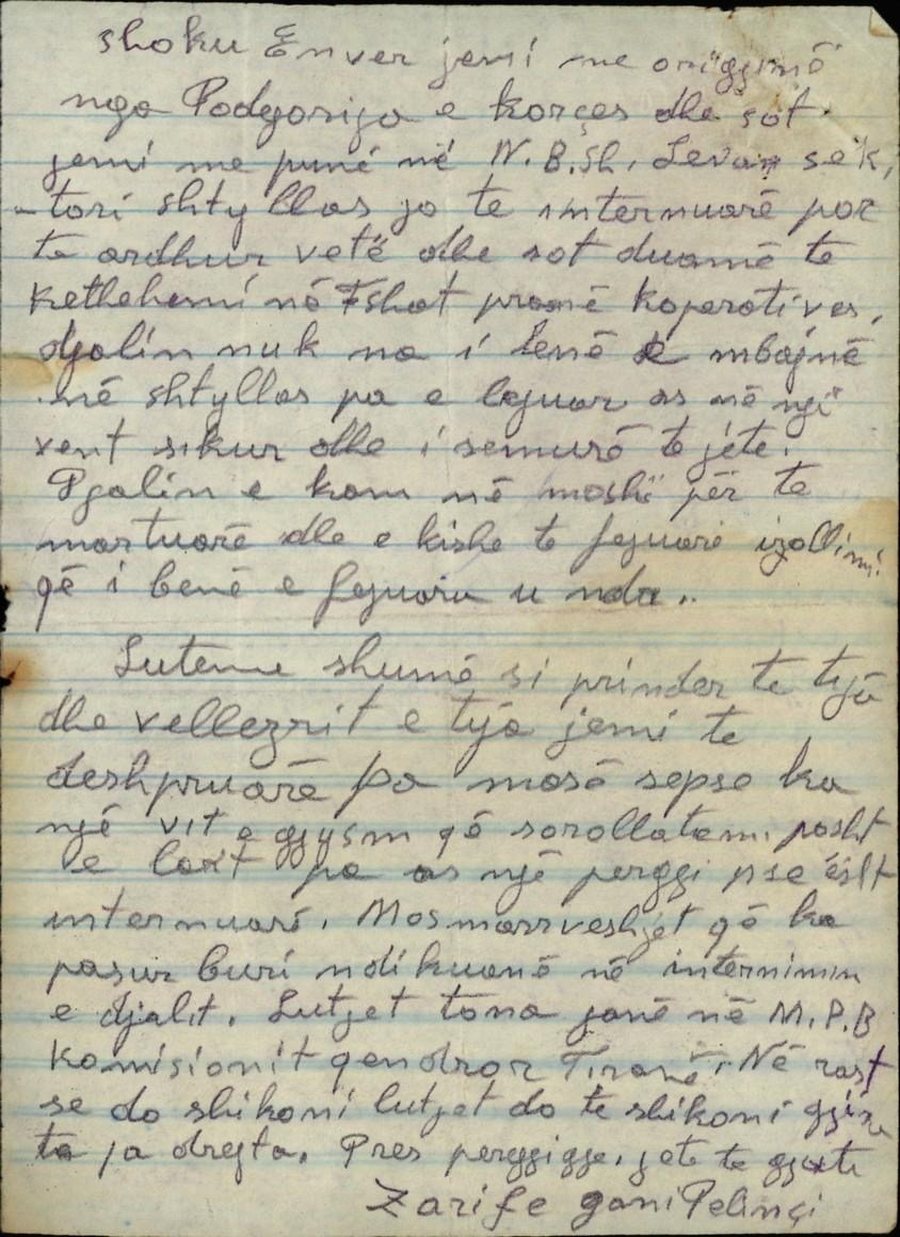 shoku Enver jemi me origjinë
nga Podgorija e korçes dhe sot
jemi me punë në N.B.Sh. Levan sek,
-tori shtyllas jo te internuarë por
te ardhur vetë dhe sot duamë te
kethehemi në Fshat pranë koperatives,
djalin nuk na i lenë e mbajnë
në shtyllas pa e lejuar as në nji
vent sikur dhe i semurë te jete.
Djalin e kam në moshë për te
martuarë dhe e kishe te fejuarë izollimi
që i benë e fejuara u nda..
Luteme shumë si prinder te tijë
dhe vellezrit e tija jemi te
deshpruarë pa masë sepse ka
një vit e gjysm që sorollatemi posht
e lart pa as një perggi pse ësht
internuarë. Mosmarrveshjet që ka
pasur buri ndikuanë në internimin
e djalit. Lutjet tona janë në M.P.B
komisionit qendror Tiranë. Në rast
se do shikoni lutjet do te shikoni gjira
ta ja drejta. Pres perggigje. jete te gjate
Zarife gani Pelinçi